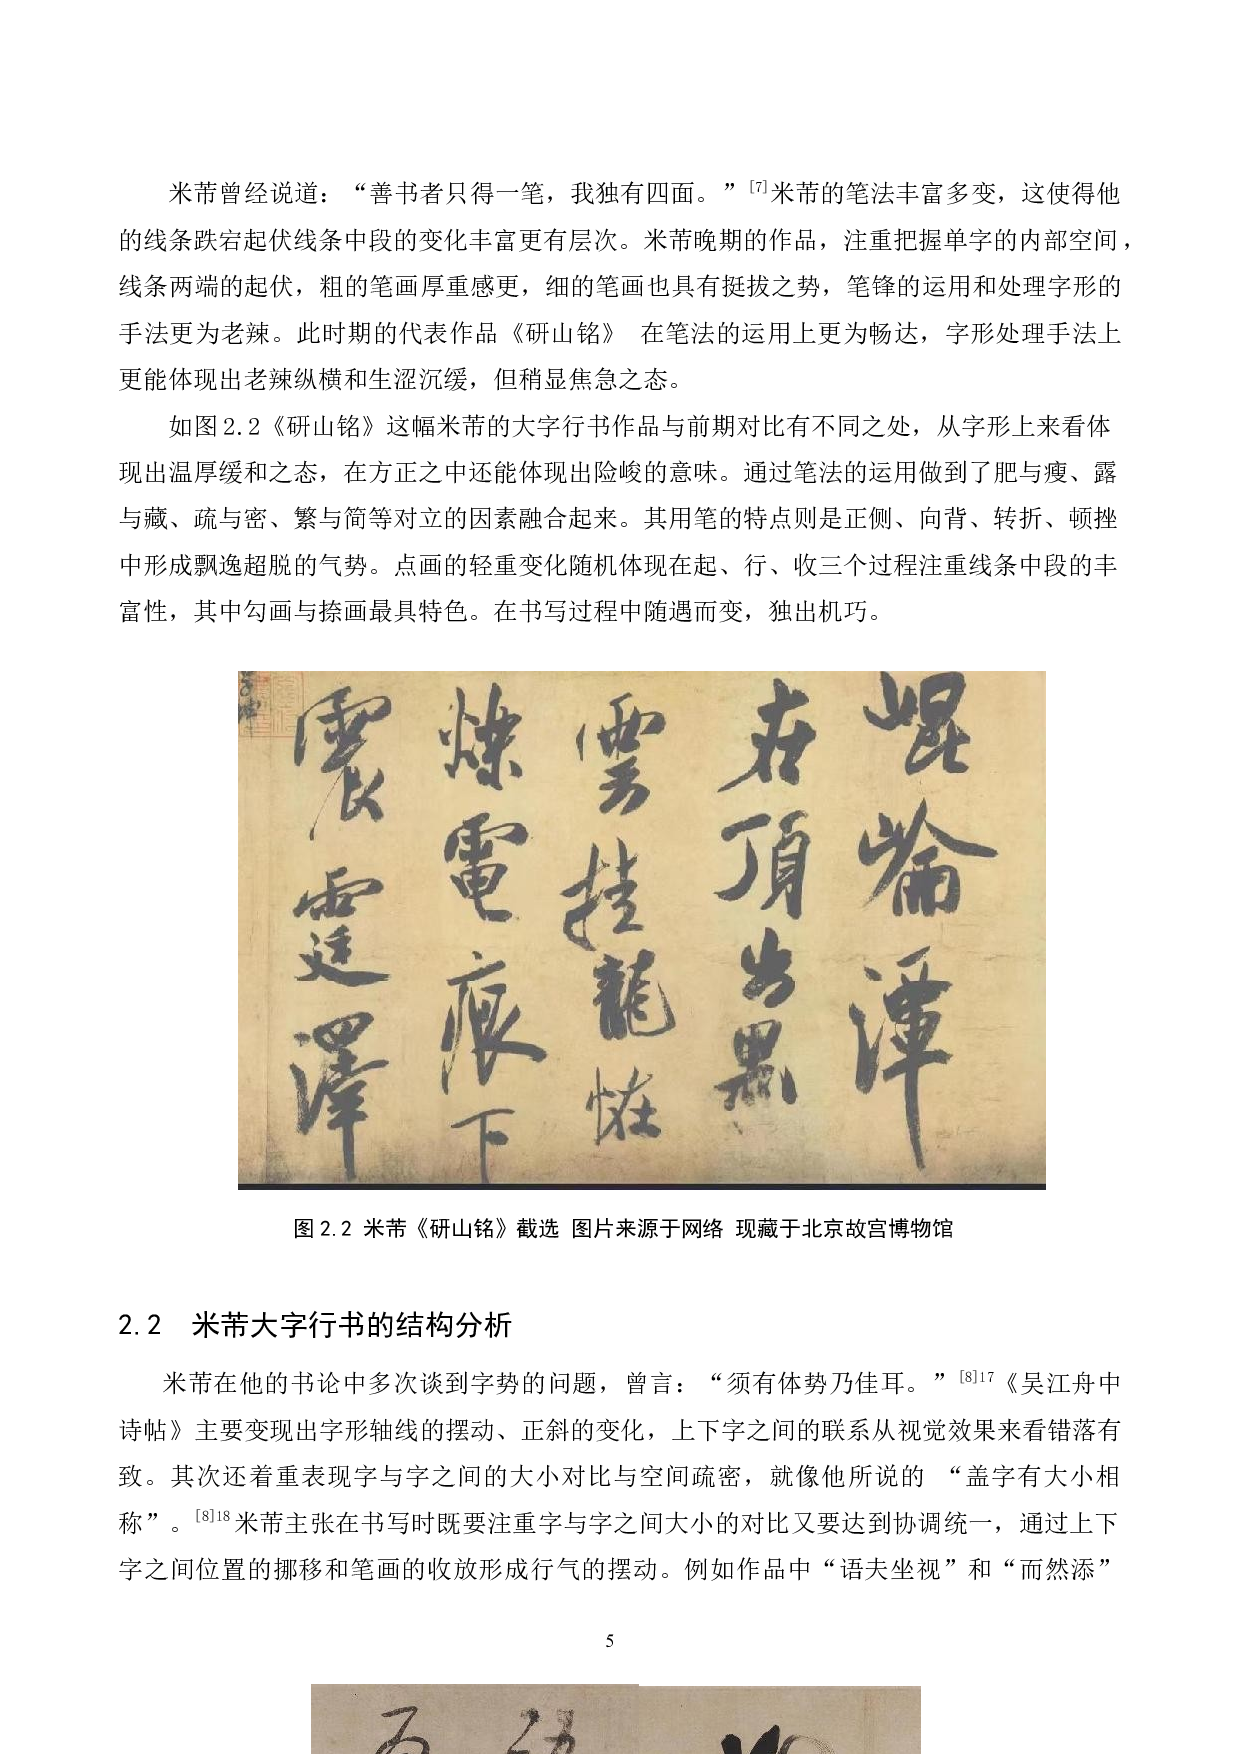 米芾曾经说道：“善书者只得一笔，我独有四面。”[7]米芾的笔法丰富多变，这使得他
的线条跌宕起伏线条中段的变化丰富更有层次。米芾晚期的作品，注重把握单字的内部空间，
线条两端的起伏，粗的笔画厚重感更，细的笔画也具有挺拔之势，笔锋的运用和处理字形的
手法更为老辣。此时期的代表作品《研山铭》 在笔法的运用上更为畅达，字形处理手法上
更能体现出老辣纵横和生涩沉缓，但稍显焦急之态。
如图2.2《研山铭》这幅米芾的大字行书作品与前期对比有不同之处，从字形上来看体
现出温厚缓和之态，在方正之中还能体现出险峻的意味。通过笔法的运用做到了肥与瘦、露
与藏、疏与密、繁与简等对立的因素融合起来。其用笔的特点则是正侧、向背、转折、顿挫
中形成飘逸超脱的气势。点画的轻重变化随机体现在起、行、收三个过程注重线条中段的丰
富性，其中勾画与捺画最具特色。在书写过程中随遇而变，独出机巧。
崐崘潭
在頂出黑
雲挂龍恠
爍電痕下
震霆澤
图 2.2 米芾《研山铭》截选 图片来源于网络 现藏于北京故宫博物馆
2.2 米芾大字行书的结构分析
米芾在他的书论中多次谈到字势的问题，曾言：“须有体势乃佳耳。”[8]17《吴江舟中
诗帖》主要变现出字形轴线的摆动、正斜的变化，上下字之间的联系从视觉效果来看错落有
致。其次还着重表现字与字之间的大小对比与空间疏密，就像他所说的 “盖字有大小相
称”。[8]18米芾主张在书写时既要注重字与字之间大小的对比又要达到协调统一，通过上下
字之间位置的挪移和笔画的收放形成行气的摆动。例如作品中“语夫坐视”和“而然添”
5